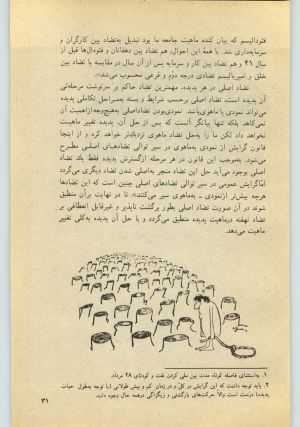 فئودالیسم که بیان کننده ماهیت جامعه ما بود تبدیل به‌تضاد بین کارگران و
سرمایه‌داری شد. با همهٔ این احوال، هم تضاد بین دهقانان و فئودال‌ها قبل از
سال ۴۱ و هم تضاد بین کار و سرمایه پس از آن سال در مقایسه با تضاد بین
خلق و امپریالیسم تضادی درجه دوم و فرعی محسوب می‌شد۱.
تضاد اصلی در هر پدیده، مهمترین تضاد حاکم بر سرنوشت مرحله‌ئی
آن پدیده است. تضاد اصلی برحسب شرایط و بسته به‌مراحل تکاملی پدیده
می‌تواند نمودی یا ماهوی‌باشد. نمودی‌بودن تضاداصلی به‌هیچ‌وجه‌ازاهمیت آن
نمی‌کاهد بلکه تنها بیانگر آنست که پس از حل آن، پدیده تغییر ماهیت
نخواهد داد لکن ما را به‌حل تضاد ماهوی نزدیك‌تر خواهد کرد و از اینجا
قانون گرایش از نمودی به‌ماهوی در سیر توالی تضادهای اصلی مطرح
می‌شود. به‌موجب این قانون در هر مرحله ازگسترش پدیده فقط یك تضاد
اصلی بوجود می‌آید حل این تضاد منجر به‌اصلی شدن تضاد دیگری می‌گردد
اماگرایش عمومی در سیر توالی تضادهای اصلی چنین است که این تضادها
هرچه بیش‌تر ازنمودی ـ به‌ماهوی سیر می‌کنند۲، تا در نهایت برآن منطبق
شوند در آن صورت تضاد اصلی بطور برگشت ناپذیر و غیرقابل انعطافی بر
تضاد نهفته درماهیت پدیده منطبق می‌گردد و با حل آن پدیده به‌کلی تغییر
ماهیت می‌دهد.
۱. به‌استثنای فاصله کوتاه مدت بین ملی کردن نفت و کودتای ۲۸ مرداد.
۲. باید توجه داشت که این گرایش در کل و در زمان کم و بیش طولانی (با توجه به‌طول حیات
پدیده) درست است والا حرکت‌های بازگشتی و زیگزاگی درهمه حال وجود دارد.
۳۱